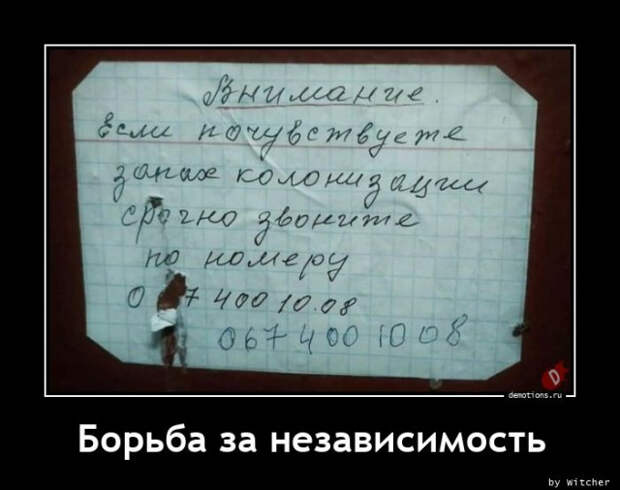 Внимание.
Если почувствуете
запах колонизации
срочно звоните
по номеру
0 7 400 10.08
067 400 10 08
demotions.ru
Борьба за независимость
by Witcher